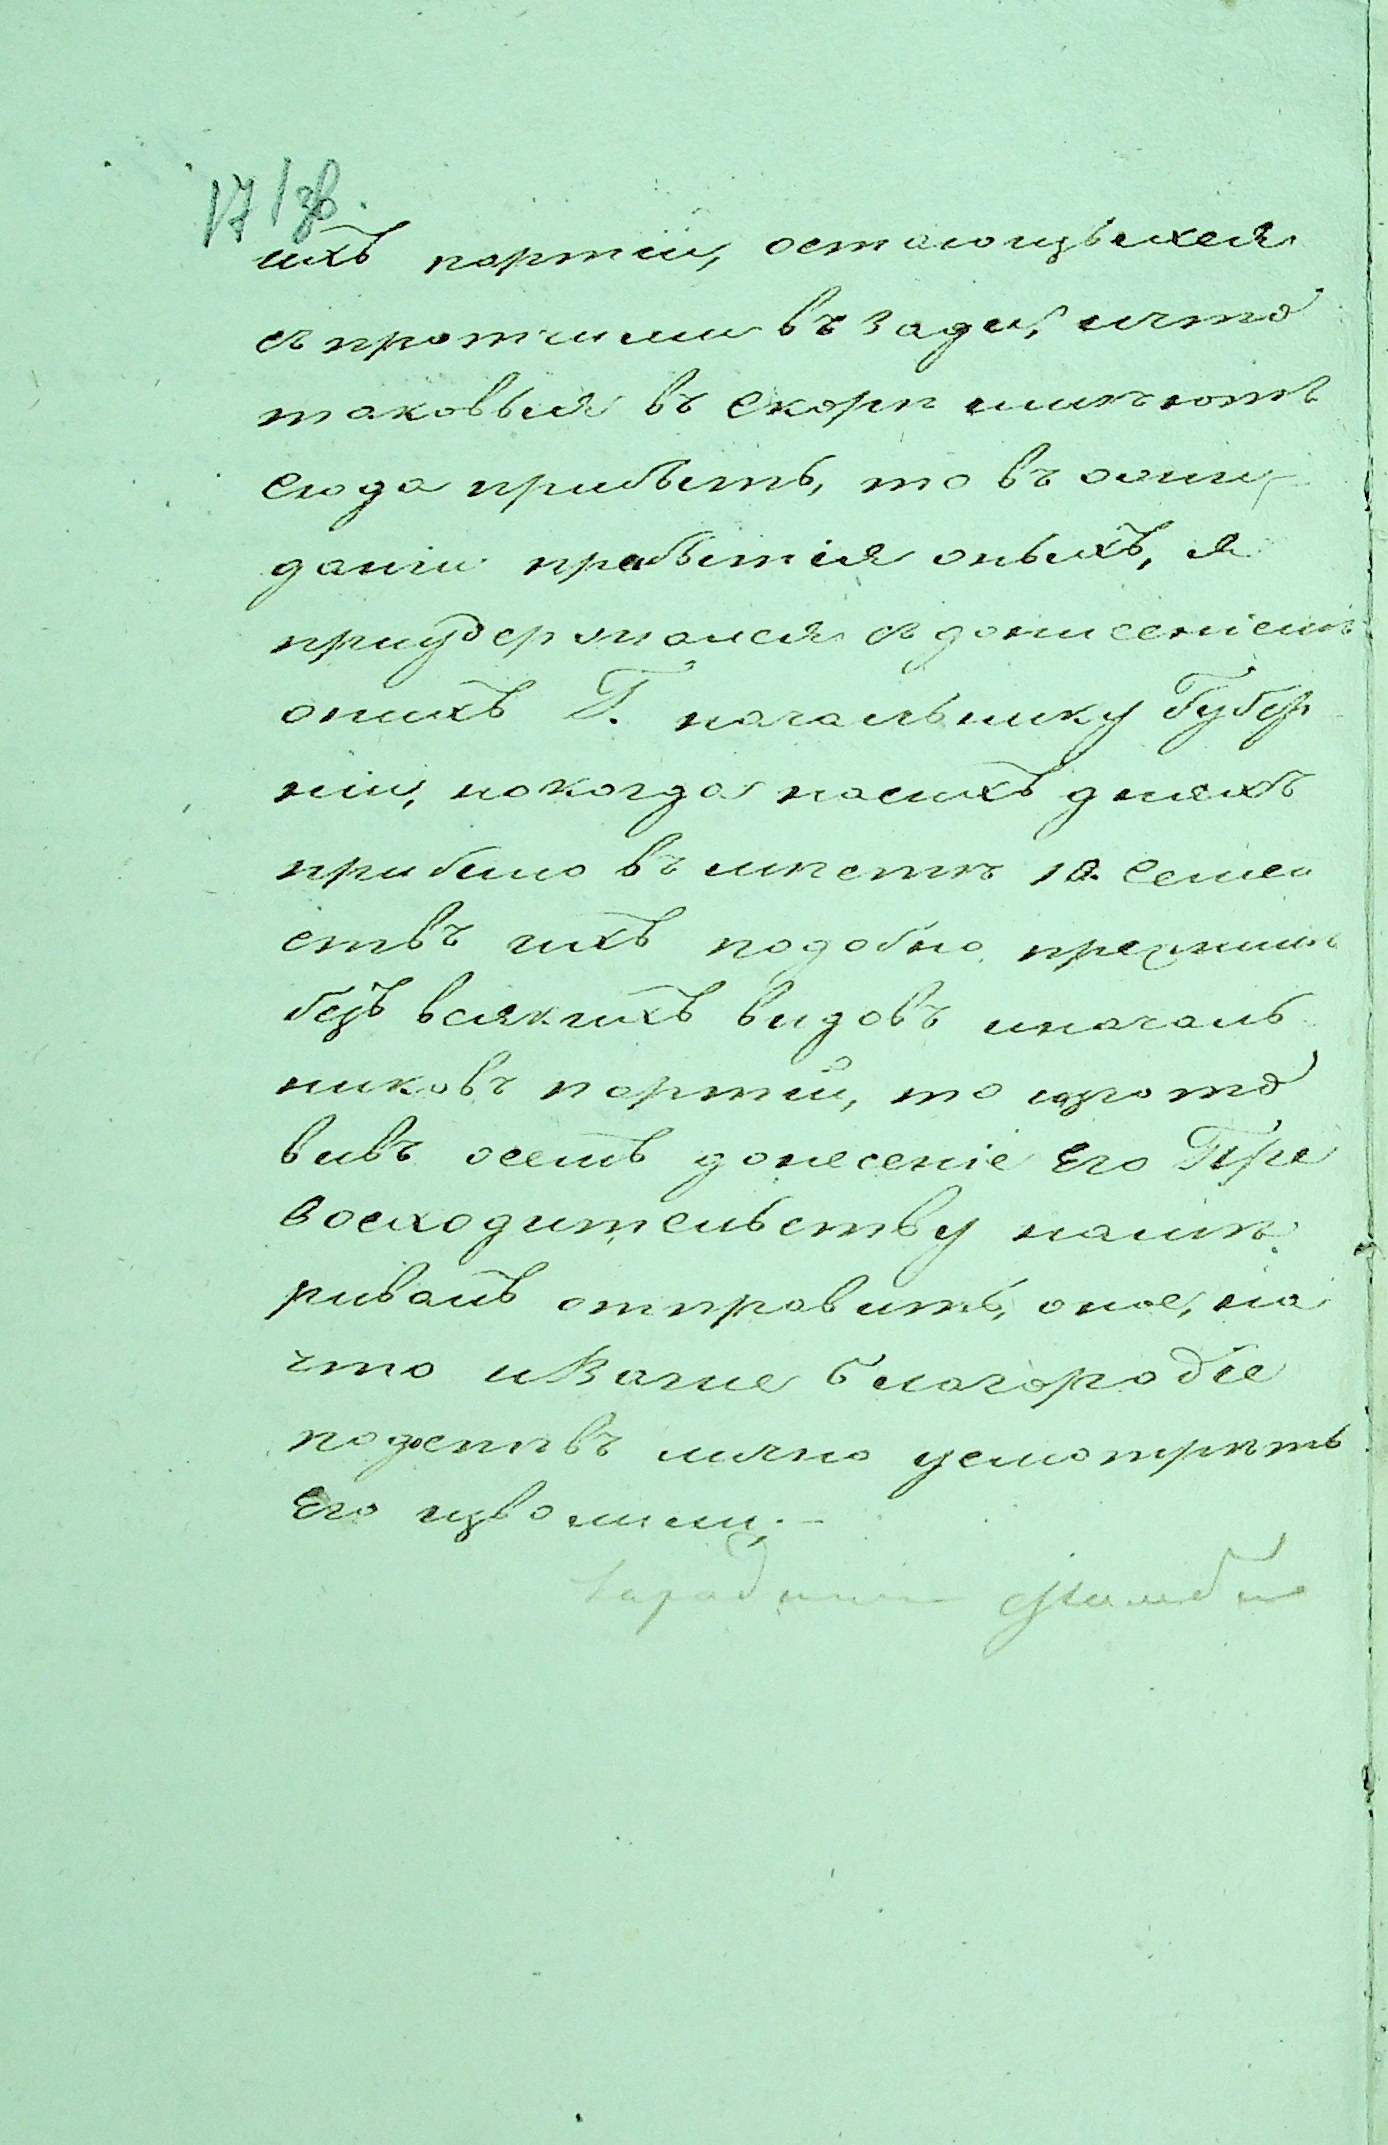 17 / зв.
ихъ портіи, остающыхся
съ протчими въ зади, и что
таковыя въ скорѣ имѣютъ
сюда прибыть, то въ ожи-
даніи прабытія оныхъ, я
приудержался съ донисеніемъ
онихъ Г. начальнику Губер
ніи, но когда насихъ дняхъ
прибыло въ мѣстѣ 10. Семеи
ствъ ихъ подобно прежнимъ
безъ всякихъ видовъ и началь
никовъ портіи, то изгото
вивъ осемъ донесеніе Его Пре
восходительству намѣ
ривалъ отправить, оное, на
что и Ваше благородіе
подженивъ лично усмотрѣть
Его изволили.-